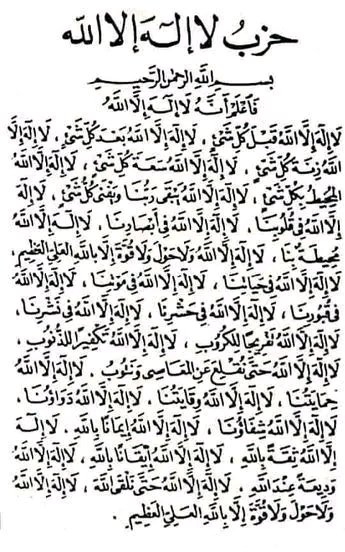 حزبُ لا إلٰهَ إلا الله
بِسْمِ اللهِ الرَّحْمٰنِ الرَّحِيمِ
فَاعْلَمْ أَنَّهُ لَا إِلٰهَ إِلَّا اللهُ
لَا إِلٰهَ إِلَّا اللهُ قَبْلَ كُلِّ شَيْءٍ ، لَا إِلٰهَ إِلَّا اللهُ بَعْدَ كُلِّ شَيْءٍ ، لَا إِلٰهَ إِلَّا
اللهُ زِنَةَ كُلِّ شَيْءٍ ، لَا إِلٰهَ إِلَّا اللهُ سَعَةَ كُلِّ شَيْءٍ ، لَا إِلٰهَ إِلَّا اللهُ
الْمُحِيطُ بِكُلِّ شَيْءٍ ، لَا إِلٰهَ إِلَّا اللهُ يَبْقَى رَبُّنَا وَيَفْنَى كُلُّ شَيْءٍ ، لَا إِلٰهَ
إِلَّا اللهُ فِي قُلُوبِنَا ، لَا إِلٰهَ إِلَّا اللهُ فِي أَبْصَارِنَا ، لَا إِلٰهَ إِلَّا اللهُ
مُحِيطَةٌ بِنَا ، لَا إِلٰهَ إِلَّا اللهُ وَلَا حَوْلَ وَلَا قُوَّةَ إِلَّا بِاللهِ الْعَلِيِّ الْعَظِيمِ.
لَا إِلٰهَ إِلَّا اللهُ فِي حَيَاتِنَا ، لَا إِلٰهَ إِلَّا اللهُ فِي مَوْتِنَا ، لَا إِلٰهَ إِلَّا اللهُ
فِي قُبُورِنَا ، لَا إِلٰهَ إِلَّا اللهُ فِي حَشْرِنَا ، لَا إِلٰهَ إِلَّا اللهُ فِي نَشْرِنَا ،
لَا إِلٰهَ إِلَّا اللهُ تَفْرِيجًا لِلْكُرُوبِ ، لَا إِلٰهَ إِلَّا اللهُ تَكْفِيرًا لِلذُّنُوبِ ،
لَا إِلٰهَ إِلَّا اللهُ حَتَّى نُقْلِعَ عَنِ الْمَعَاصِي وَنَتُوبُ . لَا إِلٰهَ إِلَّا اللهُ
حِمَايَتُنَا ، لَا إِلٰهَ إِلَّا اللهُ وِقَايَتُنَا ، لَا إِلٰهَ إِلَّا اللهُ دَوَاؤُنَا ،
لَا إِلٰهَ إِلَّا اللهُ شِفَاؤُنَا ، لَا إِلٰهَ إِلَّا اللهُ إِيمَانًا بِاللهِ . لَا إِلٰهَ
إِلَّا اللهُ ثِقَةً بِاللهِ ، لَا إِلٰهَ إِلَّا اللهُ إِيقَانًا بِاللهِ ، لَا إِلٰهَ إِلَّا اللهُ
وَدِيعَةً عِنْدَ اللهِ . لَا إِلٰهَ إِلَّا اللهُ حَتَّى نَلْقَى اللهَ ، لَا إِلٰهَ إِلَّا اللهُ
وَلَا حَوْلَ وَلَا قُوَّةَ إِلَّا بِاللهِ الْعَلِيِّ الْعَظِيمِ .